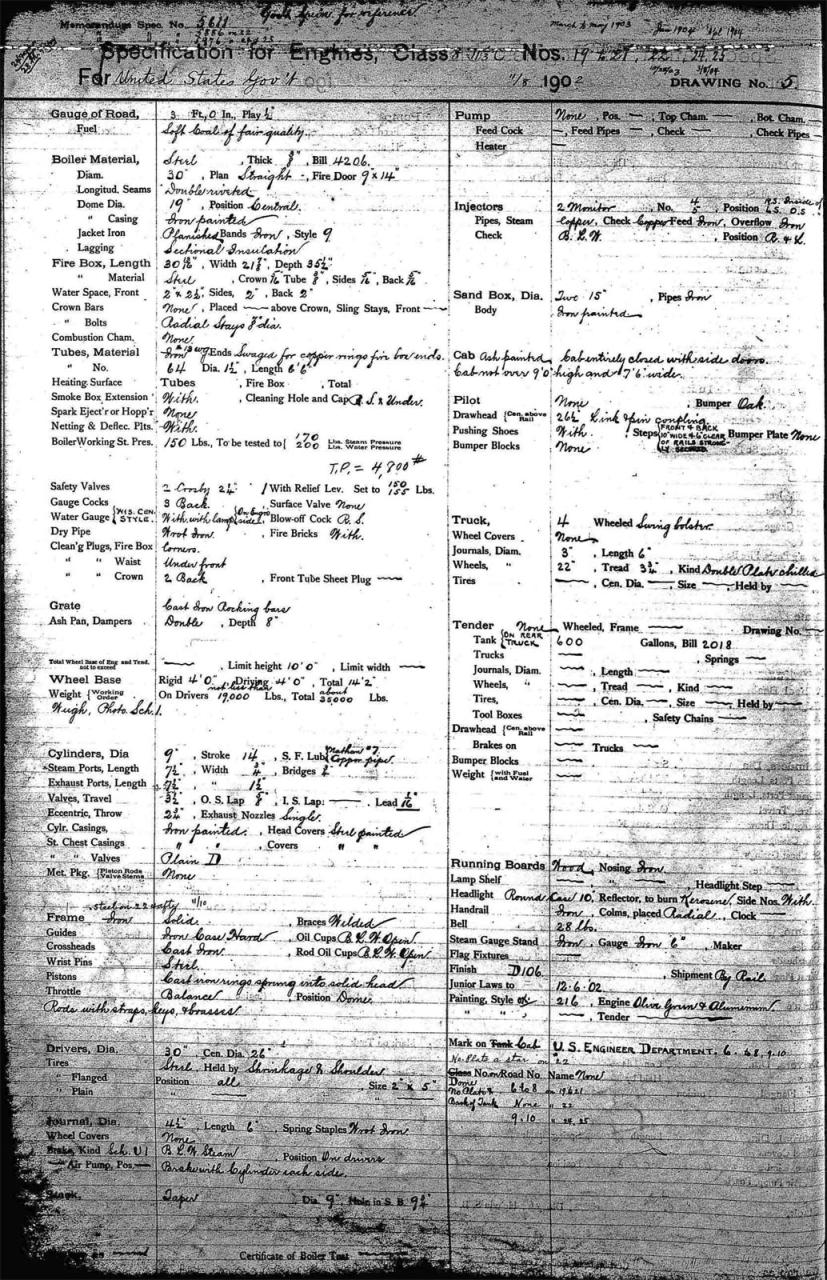 Good Specn for reference
Memorandum Spec. No. 5611
March & May 1903
Jan 1904
Specification for Engines, Class 8 11½ C Nos. 19 to 21, 22, 24, 25
For United States Gov't 11/8 1902 DRAWING No. 5
Gauge of Road, 3 Ft., 0 In., Play ½"
Fuel Soft Coal of fair quality.
Boiler Material, Steel, Thick 3/8", Bill 4206.
Diam. 30", Plan Straight, Fire Door 9" x 14"
Longitud. Seams Double riveted
Dome Dia. 19", Position Central.
" Casing Iron painted
Jacket Iron Planished Bands Iron, Style 9
Lagging Sectional Insulation
Fire Box, Length , Width , Depth 35½"
" Material Steel, Crown Tube , Sides , Back
Water Space, Front Sides, 2" Back 2"
Crown Bars None, Placed — above Crown, Sling Stays, Front —
" Bolts Radial Stays dia.
Combustion Cham. None
Tubes, Material Iron Ends Swaged for copper rings fire box ends.
" No. 64 Dia. 1½, Length 6'6"
Heating Surface Tubes , Fire Box , Total
Smoke Box Extension With. , Cleaning Hole and Cap R.S. & Under.
Spark Eject'r or Hopp'r None
Netting & Deflec. Plts. With.
Boiler Working St. Pres. 150 Lbs., To be tested to { 170 Lbs. Steam Pressure
200 Lbs. Water Pressure
T.P. = 4,800 #
Safety Valves 2 Crosby , With Relief Lev. Set to 150/155 Lbs.
Gauge Cocks 3 Back. , Surface Valve None
Water Gauge {WIS. CEN. STYLE. With, with lamp , Blow-off Cock R.S.
Dry Pipe Wrot Iron. , Fire Bricks With.
Clean'g Plugs, Fire Box Corners.
" " Waist Under front
" " Crown 2 Back , Front Tube Sheet Plug —
Grate Cast Iron Rocking bars
Ash Pan, Dampers Double, Depth 8"
Total Wheel Base of Eng. and Tend. not to exceed — , Limit height 10'0", Limit width —
Wheel Base Rigid 4'0", Driving 4'0", Total 14'2"
not less than about
Weight {Working Order On Drivers 19,000 Lbs., Total 35000 Lbs.
Weigh, Photo. Sch. 1.
Cylinders, Dia 9", Stroke 14, S. F. Lub. {Nathan #7 Copper pipe
Steam Ports, Length 7½", Width ¾", Bridges
Exhaust Ports, Length 7½", " 1½"
Valves, Travel 3½", O. S. Lap , I. S. Lap: — . Lead 1/16"
Eccentric, Throw , Exhaust Nozzles Single.
Cylr. Casings, Iron painted. , Head Covers Steel painted
St. Chest Casings " " , Covers " "
" " Valves Plain D
Met. Pkg. {Piston Rods Valve Stems None
Steel on 22 only 11/10
Frame Iron Solid , Braces Welded
Guides Iron Case Hard , Oil Cups B.L.W. Open.
Crossheads Cast Iron. , Rod Oil Cups B.L.W. Open
Wrist Pins Steel.
Pistons Cast iron rings sprung into solid head
Throttle Balance Position Dome
Rods with straps, keys, & brasses.
Drivers, Dia. 30" Cen. Dia. 26"
Tires Steel. Held by Shrinkage & Shoulder
Flanged Position all Size 2" x 5"
" Plain " —
Journal, Dia. 4½, Length 6" Spring Staples Wrot Iron
Wheel Covers None
Brake, Kind Sch. U1 B.L.W. Steam , Position On drivers
Air Pump, Pos. — Brake with Cylinder each side.
Stack, Taper Dia. 9" Hole in S. B.
Certificate of Boiler Test —
Pump None, Pos. —, Top Cham. —, Bot. Cham.
Feed Cock —, Feed Pipes —, Check —, Check Pipes —
Heater —
Injectors 2 Monitor , No. 4/5 , Position R.S. Inside of L.S. O.S.
Pipes, Steam Copper, Check Copper Feed Iron, Overflow Iron
Check B.L.W. , Position R. & L.
Sand Box, Dia. Two 15" , Pipes Iron
Body Iron painted
Cab Ash painted, Cab entirely closed with side doors.
Cab not over 9'0" high and 7'6" wide.
Pilot None , Bumper Oak.
Drawhead {Cen. above Rail 26½ Link & pin coupling.
Pushing Shoes With. , Steps {FRONT & BACK 10" WIDE & 6" CLEAR OF RAILS STRONGLY SECURED Bumper Plate None
Bumper Blocks None
Truck, 4 Wheeled Swing bolster.
Wheel Covers None
Journals, Diam. 3", Length 6"
Wheels, " 22", Tread 3¾, Kind Double Plate chilled
Tires — , Cen. Dia. — , Size — , Held by —
Tender None Wheeled, Frame — Drawing No. —
Tank {ON REAR TRUCK 600 Gallons, Bill 2018
Trucks — , Springs —
Journals, Diam. — , Length —
Wheels, " — , Tread — , Kind —
Tires, — , Cen. Dia. — , Size — Held by —
Tool Boxes — , Safety Chains —
Drawhead {Cen. above Rail —
Brakes on — Trucks —
Bumper Blocks —
Weight {with Fuel and Water —
Running Boards Wood, Nosing Iron
Lamp Shelf — , " — , Headlight Step —
Headlight Round Case 10, Reflector, to burn Kerosene, Side Nos. With.
Handrail Iron, Colms, placed Radial, Clock —
Bell 28 lbs.
Steam Gauge Stand Iron, Gauge Iron 6" , Maker
Flag Fixtures —
Finish D106 , Shipment By Rail
Junior Laws to 12-6-02
Painting, Style of 216, Engine Olive Green & Aluminum
" " " — , Tender —
Mark on Tank Cab U.S. ENGINEER DEPARTMENT. 6 to 8, 9-10
No. Plate a star on "22"
Class No. on Road No. Name None
Dome
No. Plate 6 to 8 on 19 to 21
Back of Tank None " 22
9.10 " 24, 25